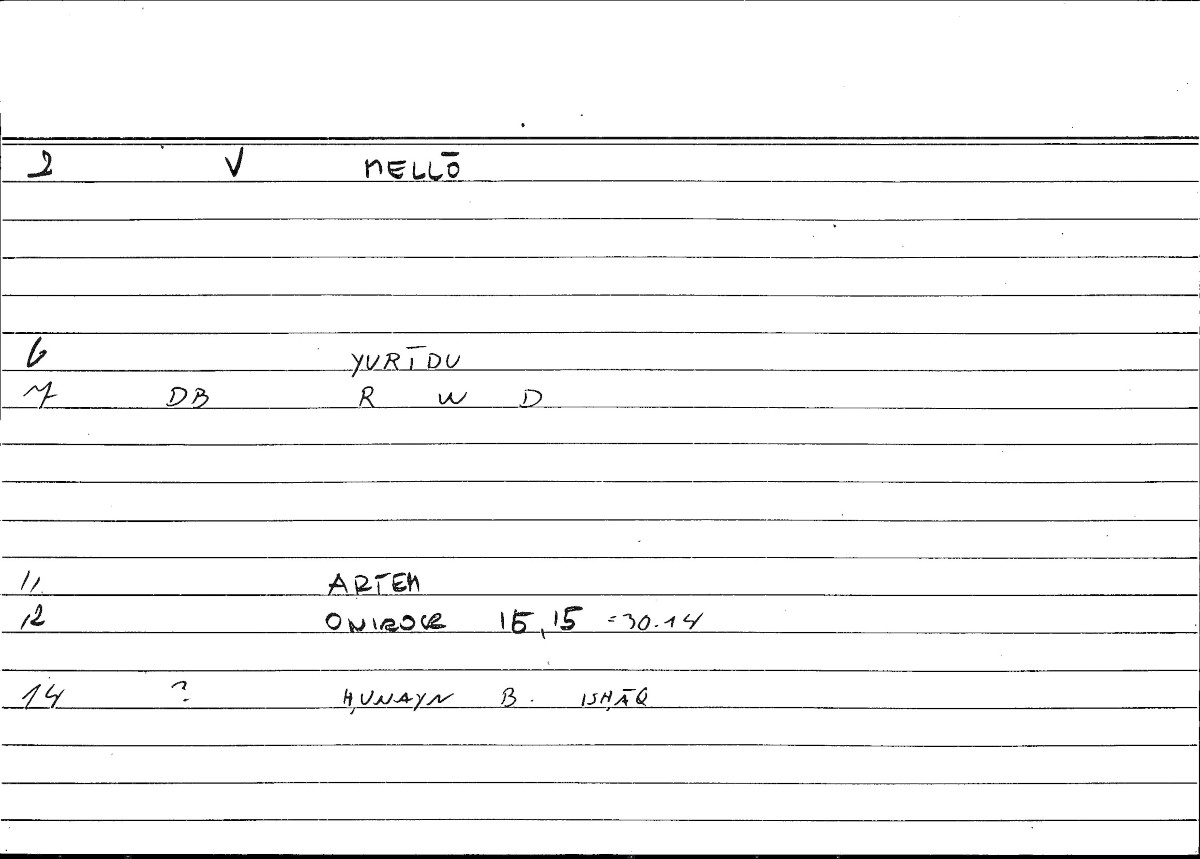 2 V MELLŌ
6 YURĪDU
7 DB R W D
11 ARTEM
12 ONIROCR 15,15 =30.14
14 ? ḤUNAYN B. ISḤĀQ